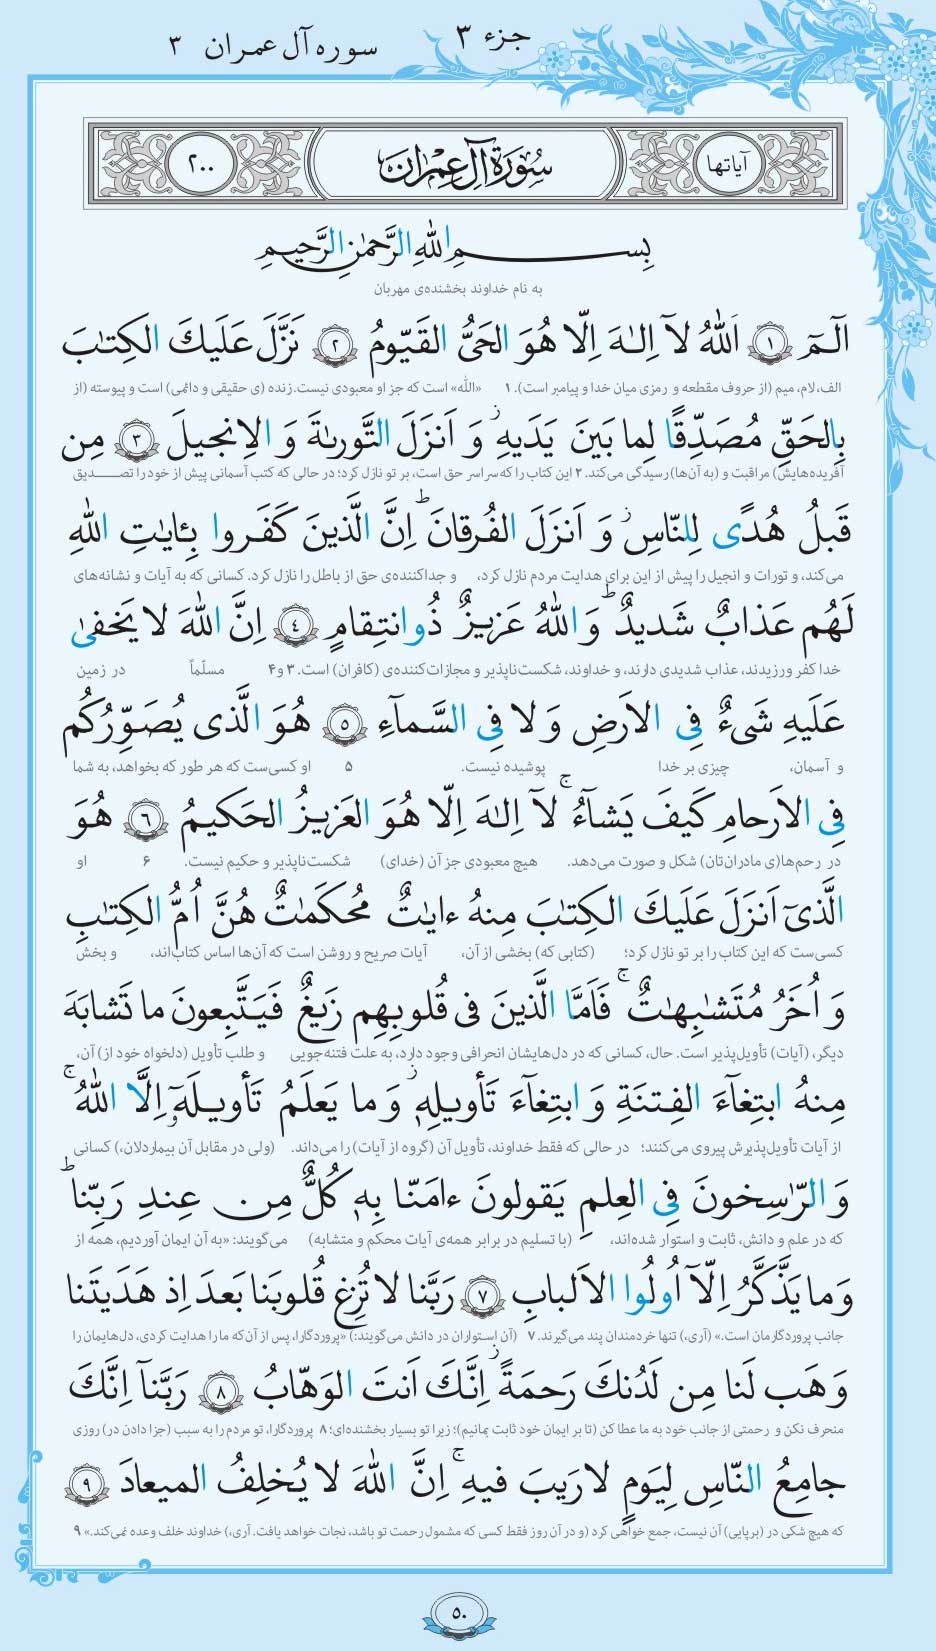 جزء ۳
سوره آل عمران ۳
آیاتها
سُورَةُ آلِ عِمْرَانَ
۲۰۰
بِسمِ اللهِ الرَّحمٰنِ الرَّحیمِ
به نام خداوند بخشنده‌ی مهربان
الٓمٓ ﴿۱﴾ اَللهُ لاۤ اِلـٰهَ اِلّا هُوَ الحَیُّ القَیّومُ ﴿۲﴾ نَزَّلَ عَلَیكَ الكِتـٰبَ
الف، لام، میم (از حروف مقطعه و رمزی میان خدا و پیامبر است). ۱ «الله» است که جز او معبودی نیست. زنده (ی حقیقی و دائمی) است و پیوسته (از
بِالحَقِّ مُصَدِّقًا لِما بَینَ یَدَیهِ ز وَ اَنزَلَ التَّورىٰةَ وَ الاِنجیلَ ﴿۳﴾ مِن
آفریده‌هایش) مراقبت و (به آن‌ها) رسیدگی می‌کند. ۲ این کتاب را که سراسر حق است، بر تو نازل کرد؛ در حالی که کتب آسمانی پیش از خود را تصدیق
قَبلُ هُدًی لِلنّاسِ ز وَ اَنزَلَ الفُرقانَ ط اِنَّ الَّذینَ كَفَروا بِـٔایـٰتِ اللهِ
می‌کند، و تورات و انجیل را پیش از این برای هدایت مردم نازل کرد، و جداکننده‌ی حق از باطل را نازل کرد. کسانی که به آیات و نشانه‌های
لَهُم عَذابٌ شَدیدٌ ط وَ اللهُ عَزیزٌ ذُو انتِقامٍ ﴿۴﴾ اِنَّ اللهَ لا یَخفیٰ
خدا کفر ورزیدند، عذاب شدیدی دارند، و خداوند، شکست‌ناپذیر و مجازات‌کننده‌ی (کافران) است. ۳ و۴ مسلّماً در زمین
عَلَیهِ شَیءٌ فِی الاَرضِ وَ لا فِی السَّمآءِ ﴿۵﴾ هُوَ الَّذی یُصَوِّرُكُم
و آسمان، چیزی بر خدا پوشیده نیست. ۵ او کسی‌ست که هر طور که بخواهد، به شما
فِی الاَرحامِ كَیفَ یَشآءُ ج لاۤ اِلـٰهَ اِلّا هُوَ العَزیزُ الحَكیمُ ﴿۶﴾ هُوَ
در رحم‌ها(ی مادران‌تان) شکل و صورت می‌دهد. هیچ معبودی جز آن (خدای) شکست‌ناپذیر و حکیم نیست. ۶ او
الَّذیۤ اَنزَلَ عَلَیكَ الكِتـٰبَ مِنهُ ءایـٰتٌ مُحكَمـٰتٌ هُنَّ اُمُّ الكِتـٰبِ
کسی‌ست که این کتاب را بر تو نازل کرد؛ (کتابی که) بخشی از آن، آیات صریح و روشن است که آن‌ها اساس کتاب‌اند، و بخش
وَ اُخَرُ مُتَشـٰبِهـٰتٌ ج فَاَمَّا الَّذینَ فی قُلوبِهِم زَیغٌ فَیَتَّبِعونَ ما تَشابَهَ
دیگر، (آیات) تأویل‌پذیر است. حال، کسانی که در دل‌هایشان انحرافی وجود دارد، به علت فتنه‌جویی و طلب تأویل (دلخواه خود از) آن،
مِنهُ ابتِغآءَ الفِتنَةِ وَ ابتِغآءَ تَأویلِهٖ ز وَ ما یَعلَمُ تَأویلَهٗۤ اِلَّا اللهُ ج
از آیات تأویل‌پذیرش پیروی می‌کنند؛ در حالی که فقط خداوند، تأویل آن (گروه از آیات) را می‌داند. (ولی در مقابل آن بیماردلان،) کسانی
وَ الرّٰسِخونَ فِی العِلمِ یَقولونَ ءامَنّا بِهٖ كُلٌّ مِن عِندِ رَبِّنا ط
که در علم و دانش، ثابت و استوار شده‌اند، (با تسلیم در برابر همه‌ی آیات محکم و متشابه) می‌گویند: «به آن ایمان آوردیم، همه از
وَ ما یَذَّكَّرُ اِلّاۤ اُولُوا الاَلبابِ ﴿۷﴾ رَبَّنا لا تُزِغ قُلوبَنا بَعدَ اِذ هَدَیتَنا
جانب پروردگارمان است.» (آری،) تنها خردمندان پند می‌گیرند. ۷ (آن استواران در دانش می‌گویند:) «پروردگارا، پس از آن‌که ما را هدایت کردی، دل‌هایمان را
وَ هَب لَنا مِن لَدُنكَ رَحمَةً ز اِنَّكَ اَنتَ الوَهّابُ ﴿۸﴾ رَبَّنآ اِنَّكَ
منحرف نکن و رحمتی از جانب خود به ما عطا کن (تا بر ایمان خود ثابت بمانیم)؛ زیرا تو بسیار بخشنده‌ای؛ ۸ پروردگارا، تو مردم را به سبب (جزا دادن در) روزی
جامِعُ النّاسِ لِیَومٍ لا رَیبَ فیهِ ج اِنَّ اللهَ لا یُخلِفُ المیعادَ ﴿۹﴾
که هیچ شکی در (برپایی) آن نیست، جمع خواهی کرد (و در آن روز فقط کسی که مشمول رحمت تو باشد، نجات خواهد یافت. آری،) خداوند خلف وعده نمی‌کند.» ۹
۵۰